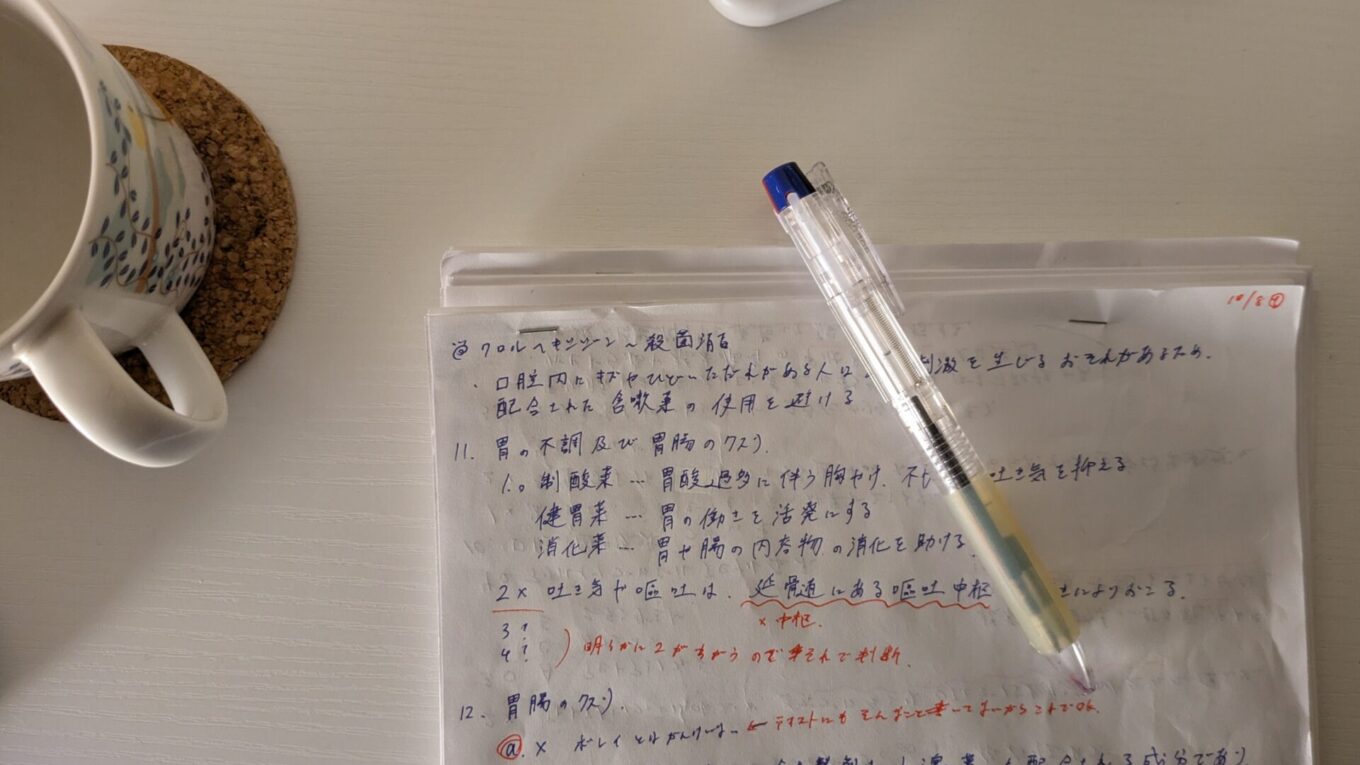 10/8 ①
@ クロルヘキシジン〜殺菌消
・口腔内にキズやひどいただれがある人は 刺激を生じるおそれがあるため、
配合された含嗽薬の使用を避ける
11. 胃の不調及び胃腸のクスリ
1.○ 制酸薬…胃酸過多に伴う胸やけ、 吐き気を抑える
健胃薬…胃の働きを活発にする
消化薬…胃や腸の内容物の消化を助ける
2× 吐き気や嘔吐は、延髄にある嘔吐中枢 によりおこる。
×中枢.
3 ?
4 ?
明らかに2がちがうので それで判断.
12. 胃腸のクスリ
ⓐ × ボレイ ← テキストにもそんなこと書いてないからこれでOK.